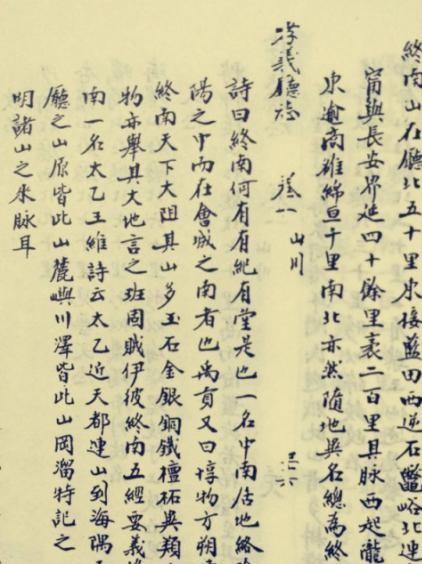 終南山在廳北五十里東接藍田西逆石鼈峪北連
甯與長安界延四十餘里袤二百里其脉西起隴
東逾商雒綿亘千里南北亦然隨地異名總為終
孝義廳志 卷一 山川
詩曰終南何有有紀有堂是也一名中南居地絡
陽之中而在會城之南者也禹貢又曰惇物方朔
終南天下大阻其山多玉石金銀銅鐵檀柘異類
物亦舉其大地言之班固賦伊彼終南五經要義
南一名太乙王維詩云太乙近天都連山到海隅
廳之山原皆此山麓嶼川澤皆此山岡溜特記之
明諸山之來脉耳